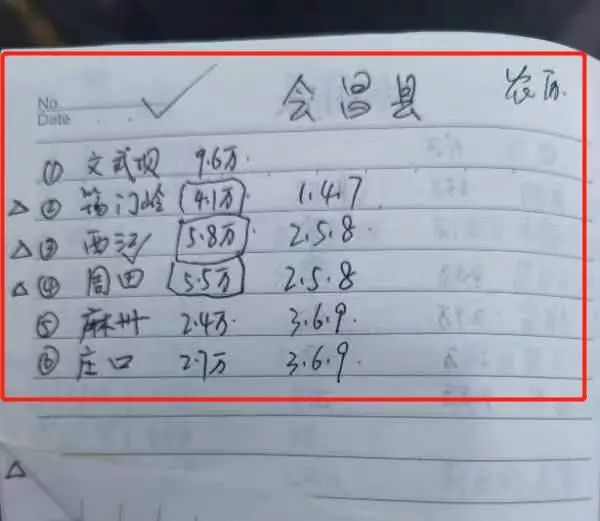 No.
Date
会昌县 农历.
① 文武坝 9.6万.
△ ② 筠门岭 4.1万 1.4.7
△ ③ 西江 5.8万 2.5.8
△ ④ 周田 5.5万 2.5.8
⑤ 麻州 2.4万. 3.6.9.
⑥ 庄口 2.7万 3.6.9.
△